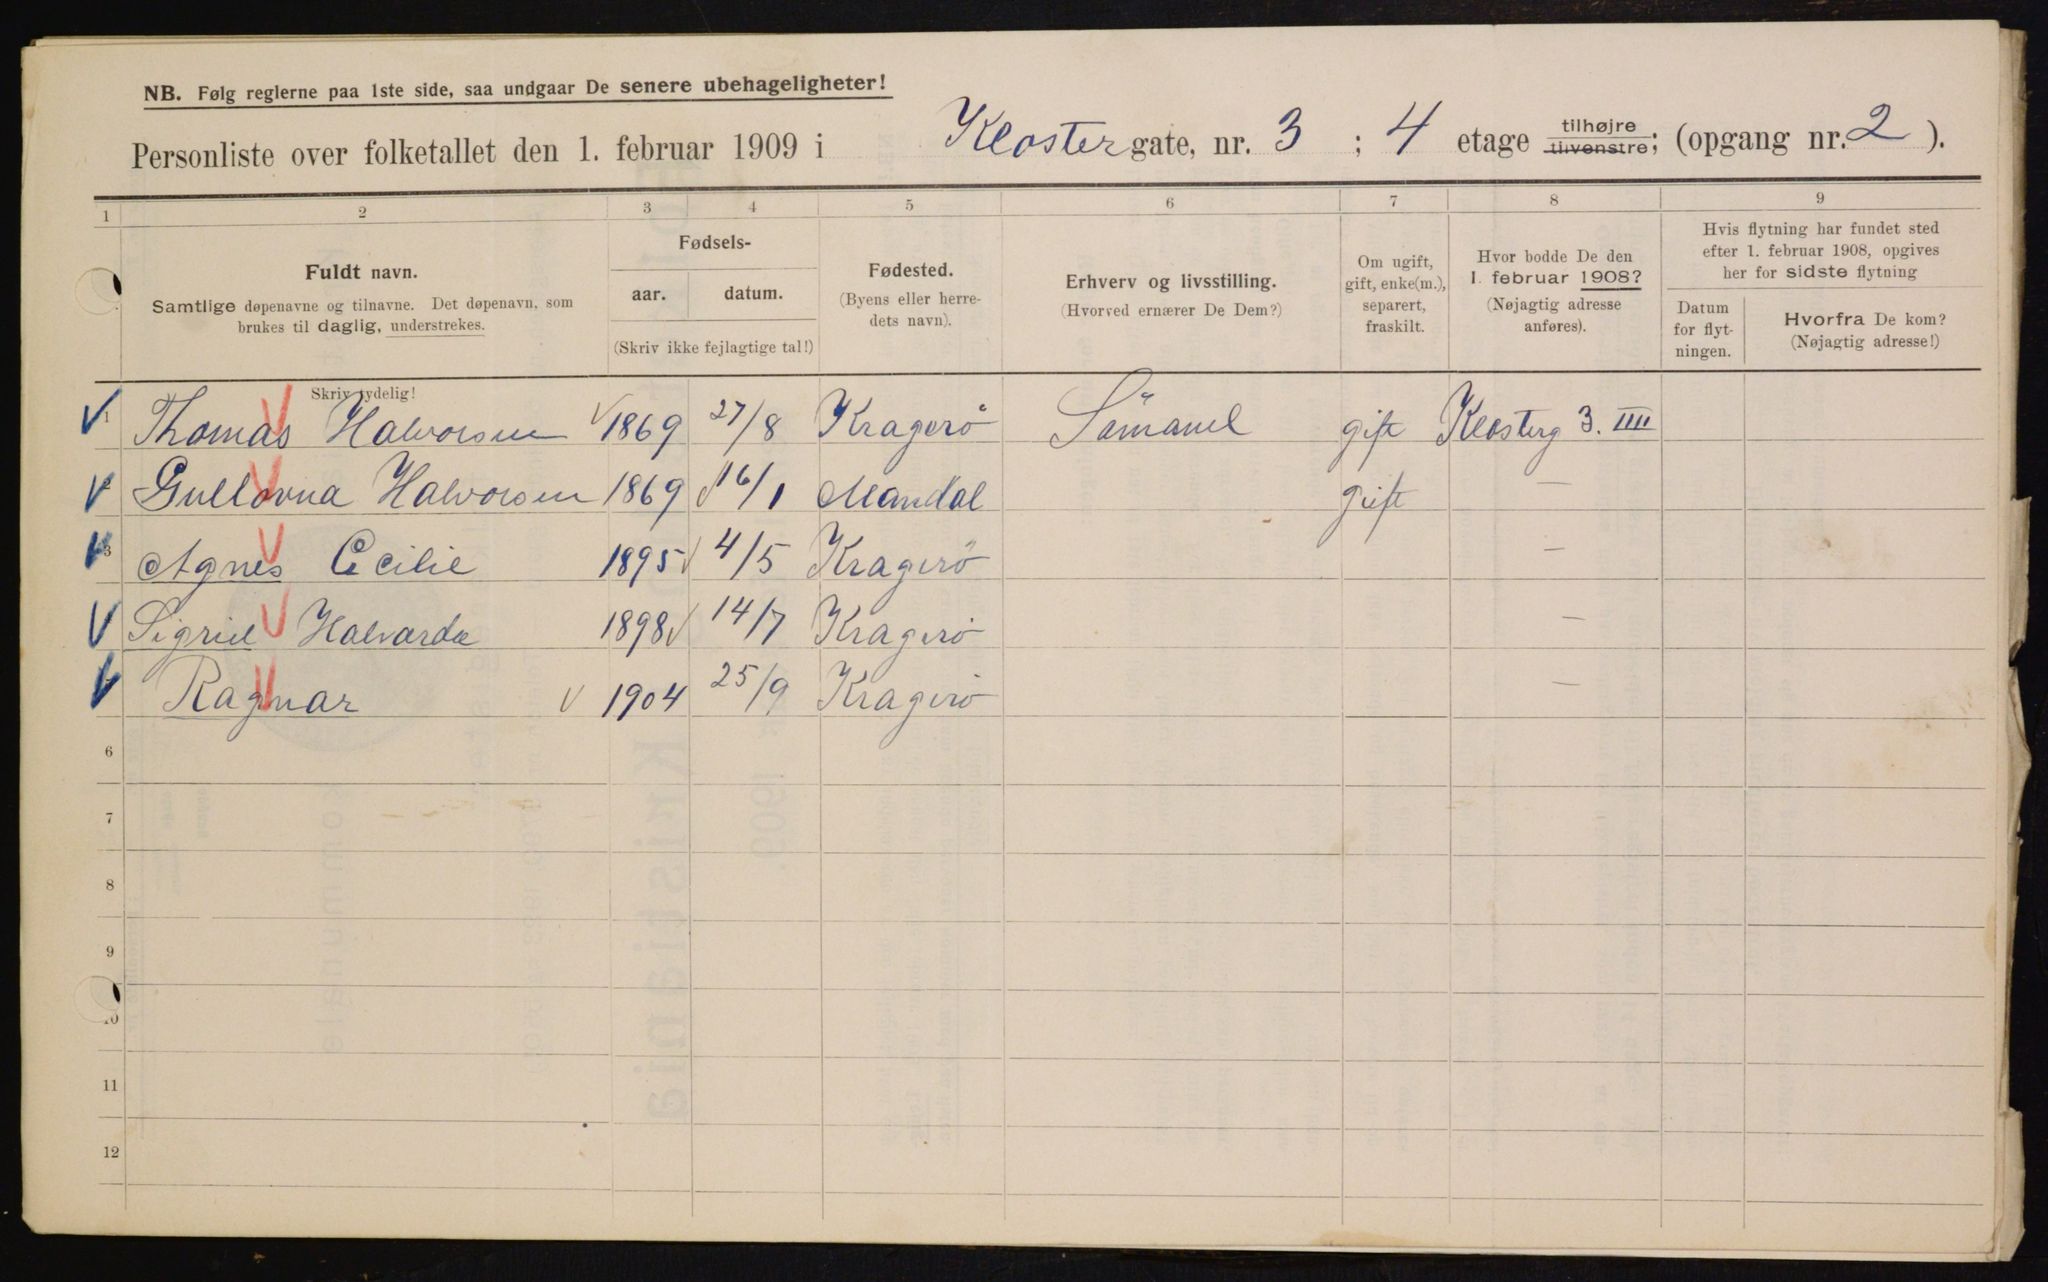 NB. Følg reglerne paa 1ste side, saa undgaar De senere ubehageligheter!
Personliste over folketallet den 1. februar 1909 i Klostergate, nr. 3 ; 4 etage tilhøjre tilvenstre; (opgang nr. 2 ).
1 2 3 4 5 6 7 8 9
Fuldt navn.
Samtlige døpenavne og tilnavne. Det døpenavn, som
brukes til daglig, understrekes.
Fødsels-
aar. datum.
(Skriv ikke fejlagtige tal!)
Fødested.
(Byens eller herre-
dets navn).
Erhverv og livsstilling.
(Hvorved ernærer De Dem?)
Om ugift,
gift, enke(m.),
separert,
fraskilt.
Hvor bodde De den
1. februar 1908?
(Nøjagtig adresse
anføres).
Hvis flytning har fundet sted
efter 1. februar 1908, opgives
her for sidste flytning
Datum
for flyt-
ningen.
Hvorfra De kom?
(Nøjagtig adresse!)
Skriv tydelig!
1 Thomas Halvorsen 1869 27/8 Kragerö Sömand gift Klosterg 3. IIII
Halvorsen 1869 16/1 Mandal gift —
3 Agnes Cecilie 1895 4/5 Kragerö —
Sigrid Halvarda 1898 14/7 Kragerö —
Ragnar 1904 25/9 Kragerö —
6
7
8
9
10
11
12